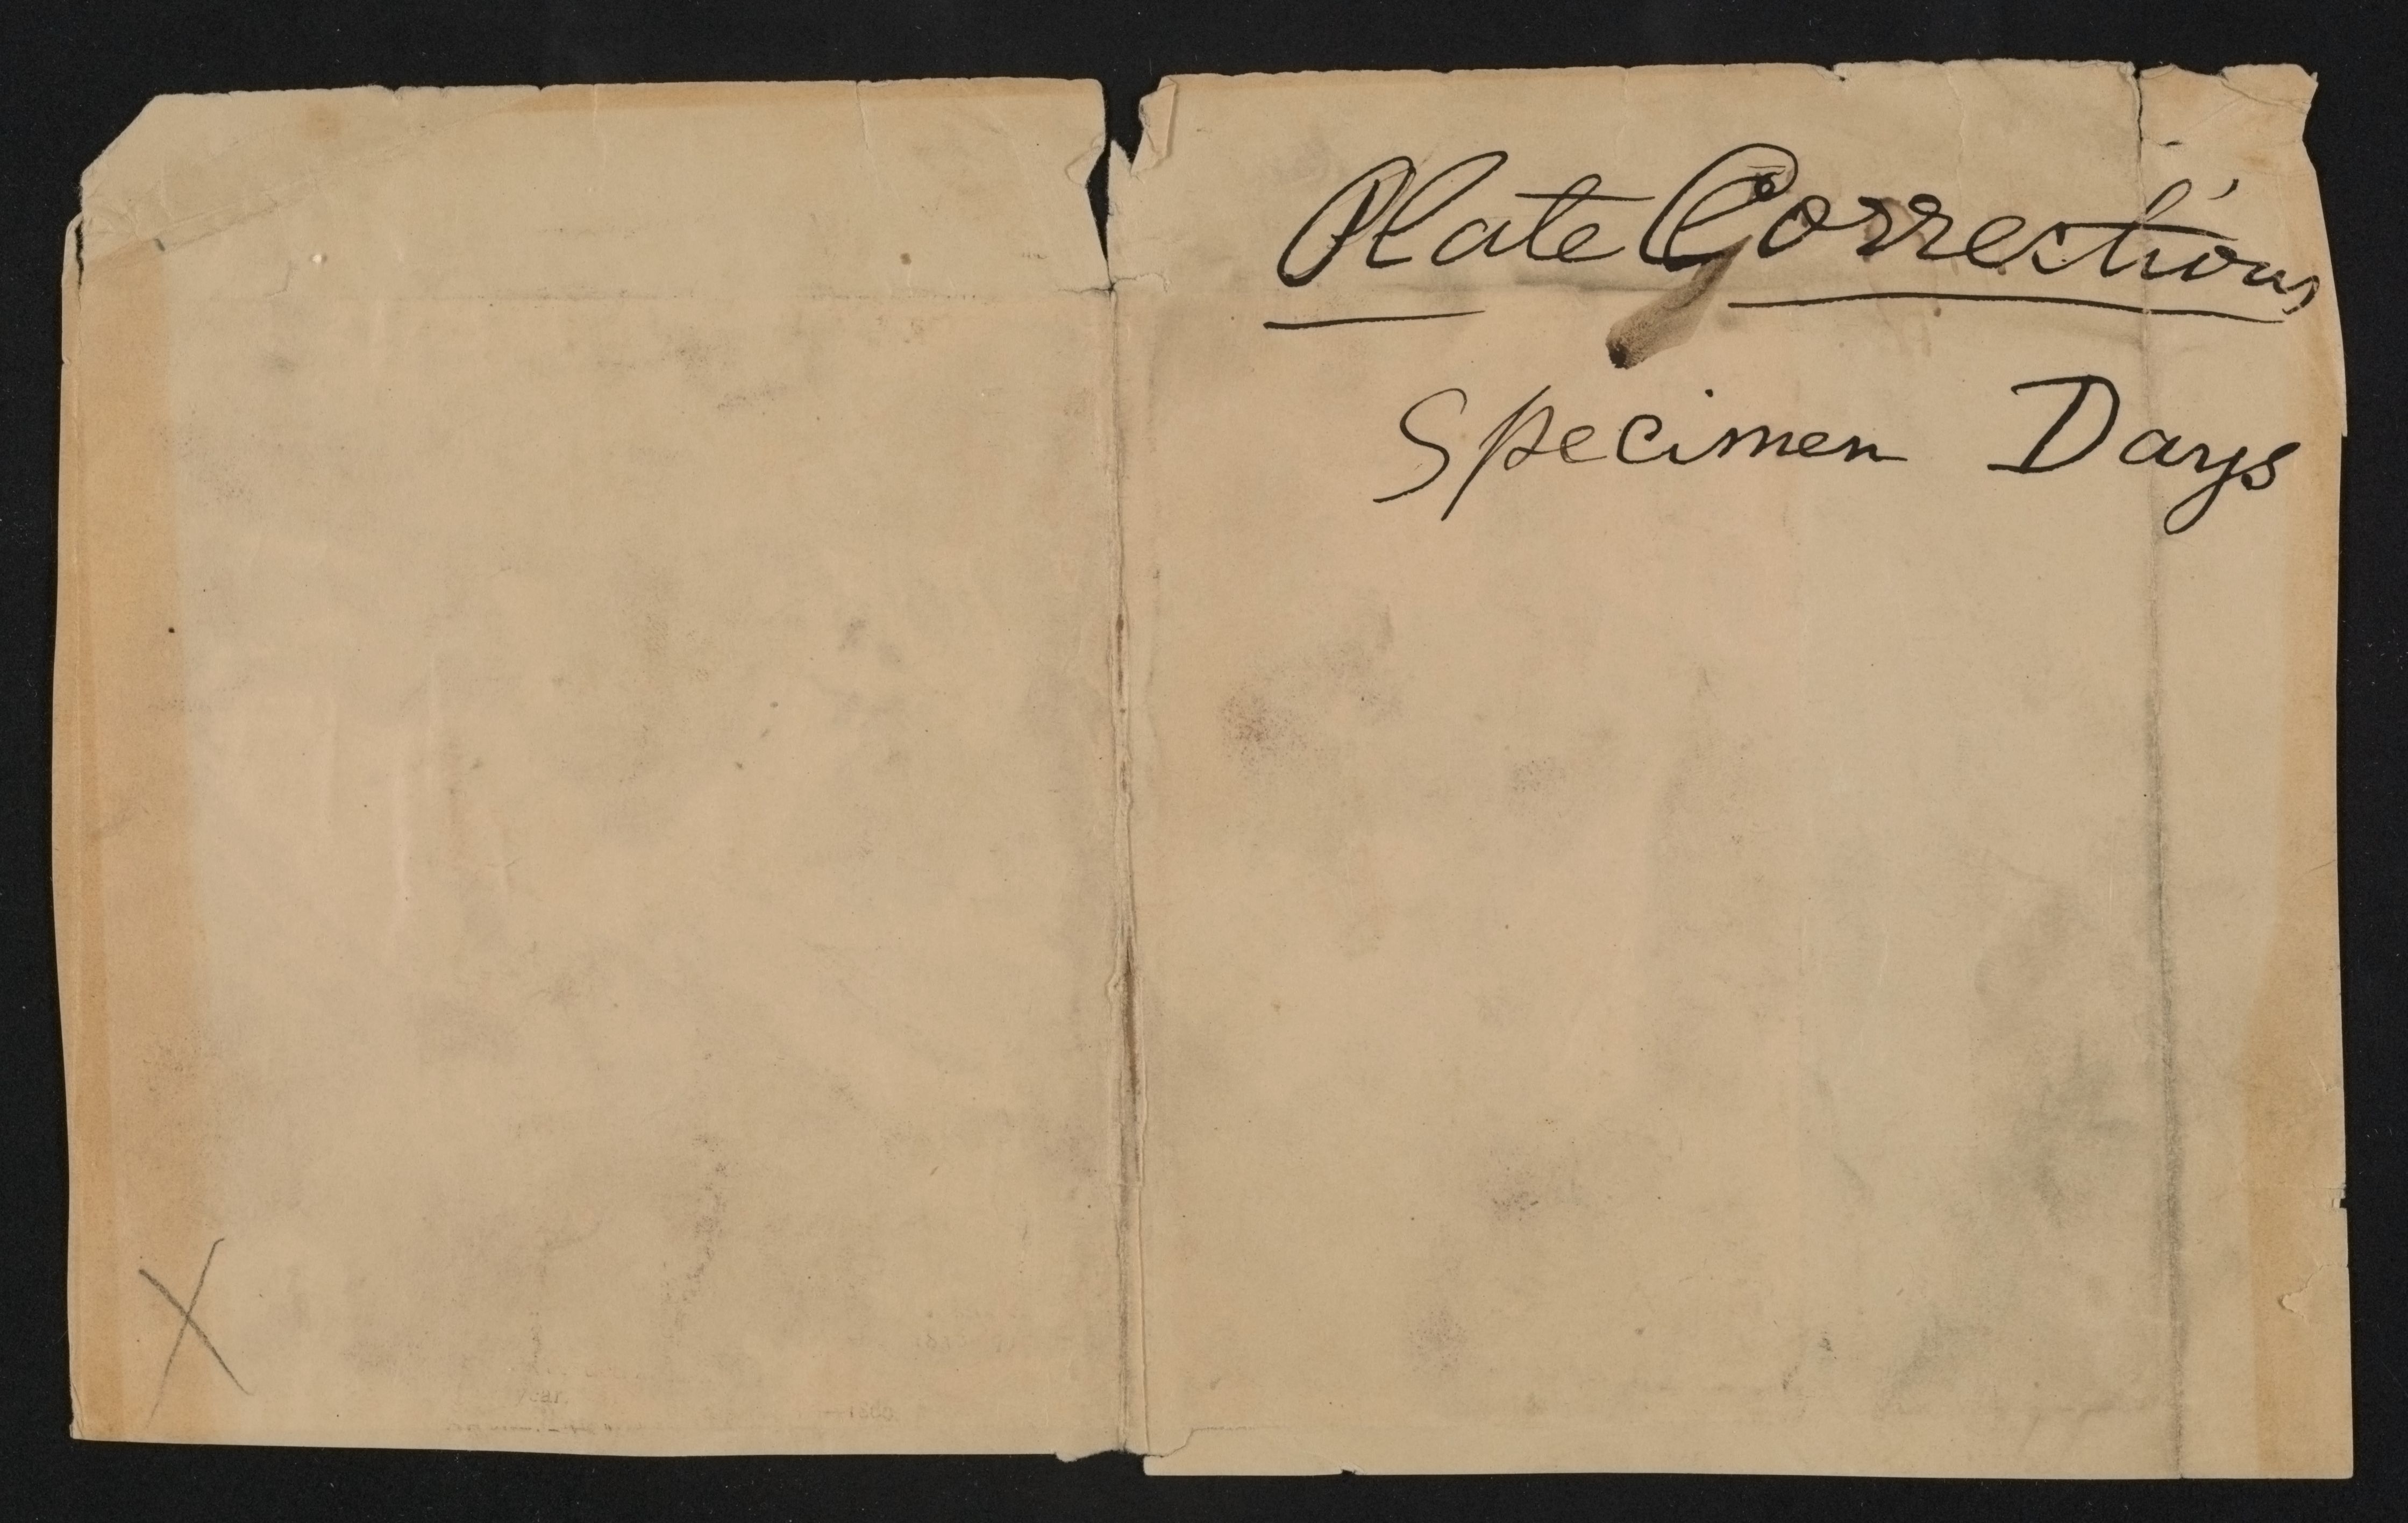 Plate Corrections
Specimen Days
X